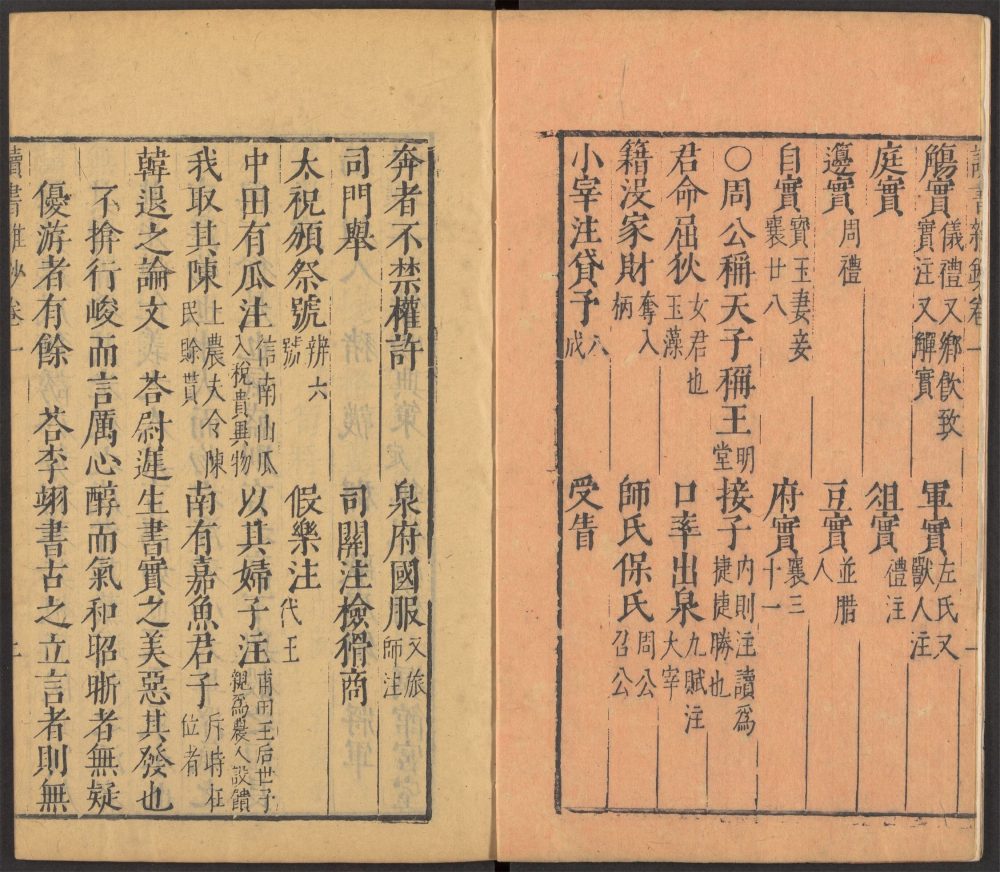 讀書雜鈔卷一 一
觴實儀禮又鄉飲致實注又解實 軍實左氏又獸人注
庭實 俎實禮注
籩實周禮 豆實並腊人
自實寶玉妻妾襄廿八 府實襄三十一
○周公稱天子稱王明堂接子內則注讀爲捷捷勝也
君命屈狄女君也玉藻 口率出泉九賦注大宰
籍沒家財奪入柄 師氏保氏周公召公
小宰注貸予八成 受告
奔者不禁權許 泉府國服又旅師注
司門舉 司關注檢猾商
太祝頒祭號辨六號 假樂注代王
中田有瓜注信南山瓜入稅貴異物 以其婦子注甫田王后世子親爲農人設饋
我取其陳上農夫令陳民賒貰 南有嘉魚君子斥時在位者
韓退之論文 荅尉遲生書實之美惡其發也
不揜行峻而言厲心醇而氣和昭晰者無疑
優游者有餘 荅李翊書古之立言者則無
讀書雜鈔卷一